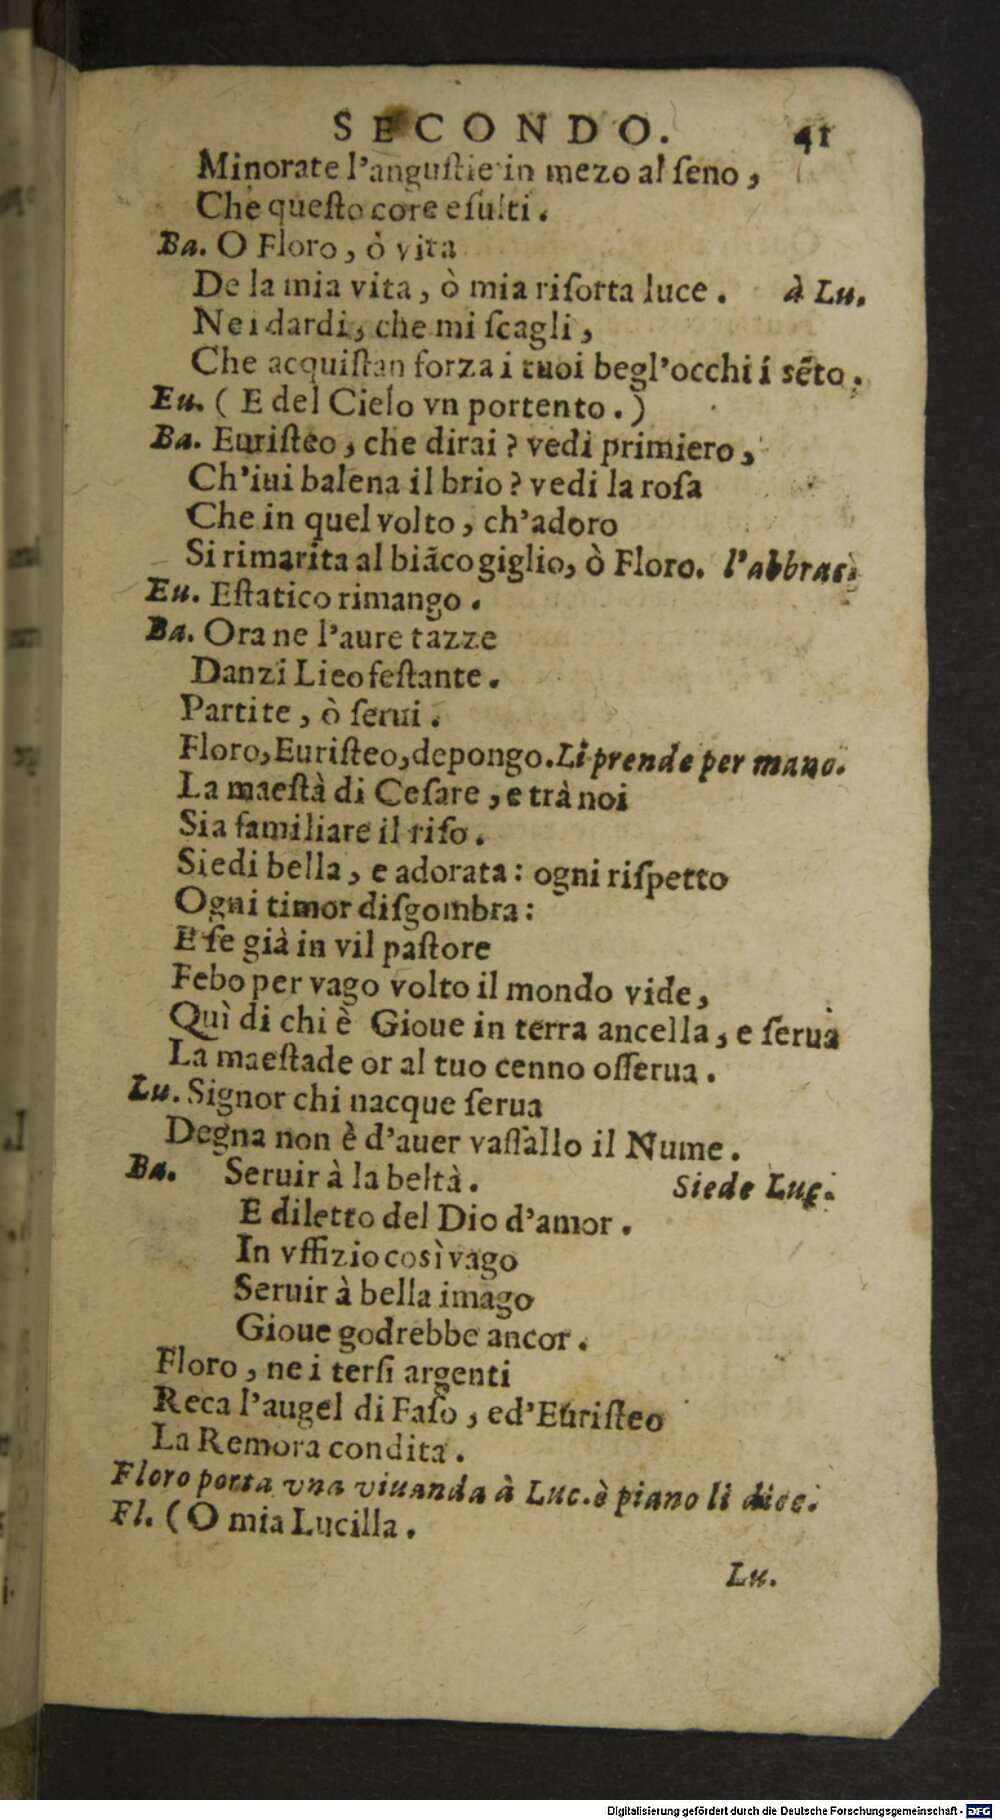 SECONDO. 41
Minorate l'anguſtie in mezo al ſeno,
Che queſto core eſulti.
Ba. O Floro, ò vita
De la mia vita, ò mia riſorta luce. à Lu.
Ne i dardi, che mi ſcagli,
Che acquiſtan forza i tuoi begl'occhi í sẽto.
Eu. ( E del Cielo vn portento.)
Ba. Euriſteo, che dirai? vedi primiero,
Ch'iui balena il brio? vedi la roſa
Che in quel volto, ch'adoro
Si rimarita al biãco giglio, ò Floro. l'abbrac
Eu. Eſtatico rimango.
Ba. Ora ne l'aure tazze
Danzi Lieo feſtante.
Partite, ò ſerui.
Floro, Euriſteo, depongo. Li prende per mano.
La maeſtà di Ceſare, e trà noi
Sia familiare il riſo.
Siedi bella, e adorata: ogni riſpetto
Ogni timor diſgombra:
E ſe già in vil paſtore
Febo per vago volto il mondo vide,
Quì di chi è Gioue in terra ancella, e ſerua
La maeſtade or al tuo cenno oſſerua.
Lu. Signor chi nacque ſerua
Degna non è d'auer vaſſallo il Nume.
Ba. Seruir à la beltà. Siede Luc.
E diletto del Dio d'amor.
In vffizio così vago
Seruir à bella imago
Gioue godrebbe ancor.
Floro, ne i terſi argenti
Reca l'augel di Faſo, ed'Euriſteo
La Remora condita.
Floro porta vna viuanda à Luc. è piano li dice.
Fl. (O mia Lucilla.
Lu.
Digitalisierung gefördert durch die Deutsche Forschungsgemeinschaft - DFG